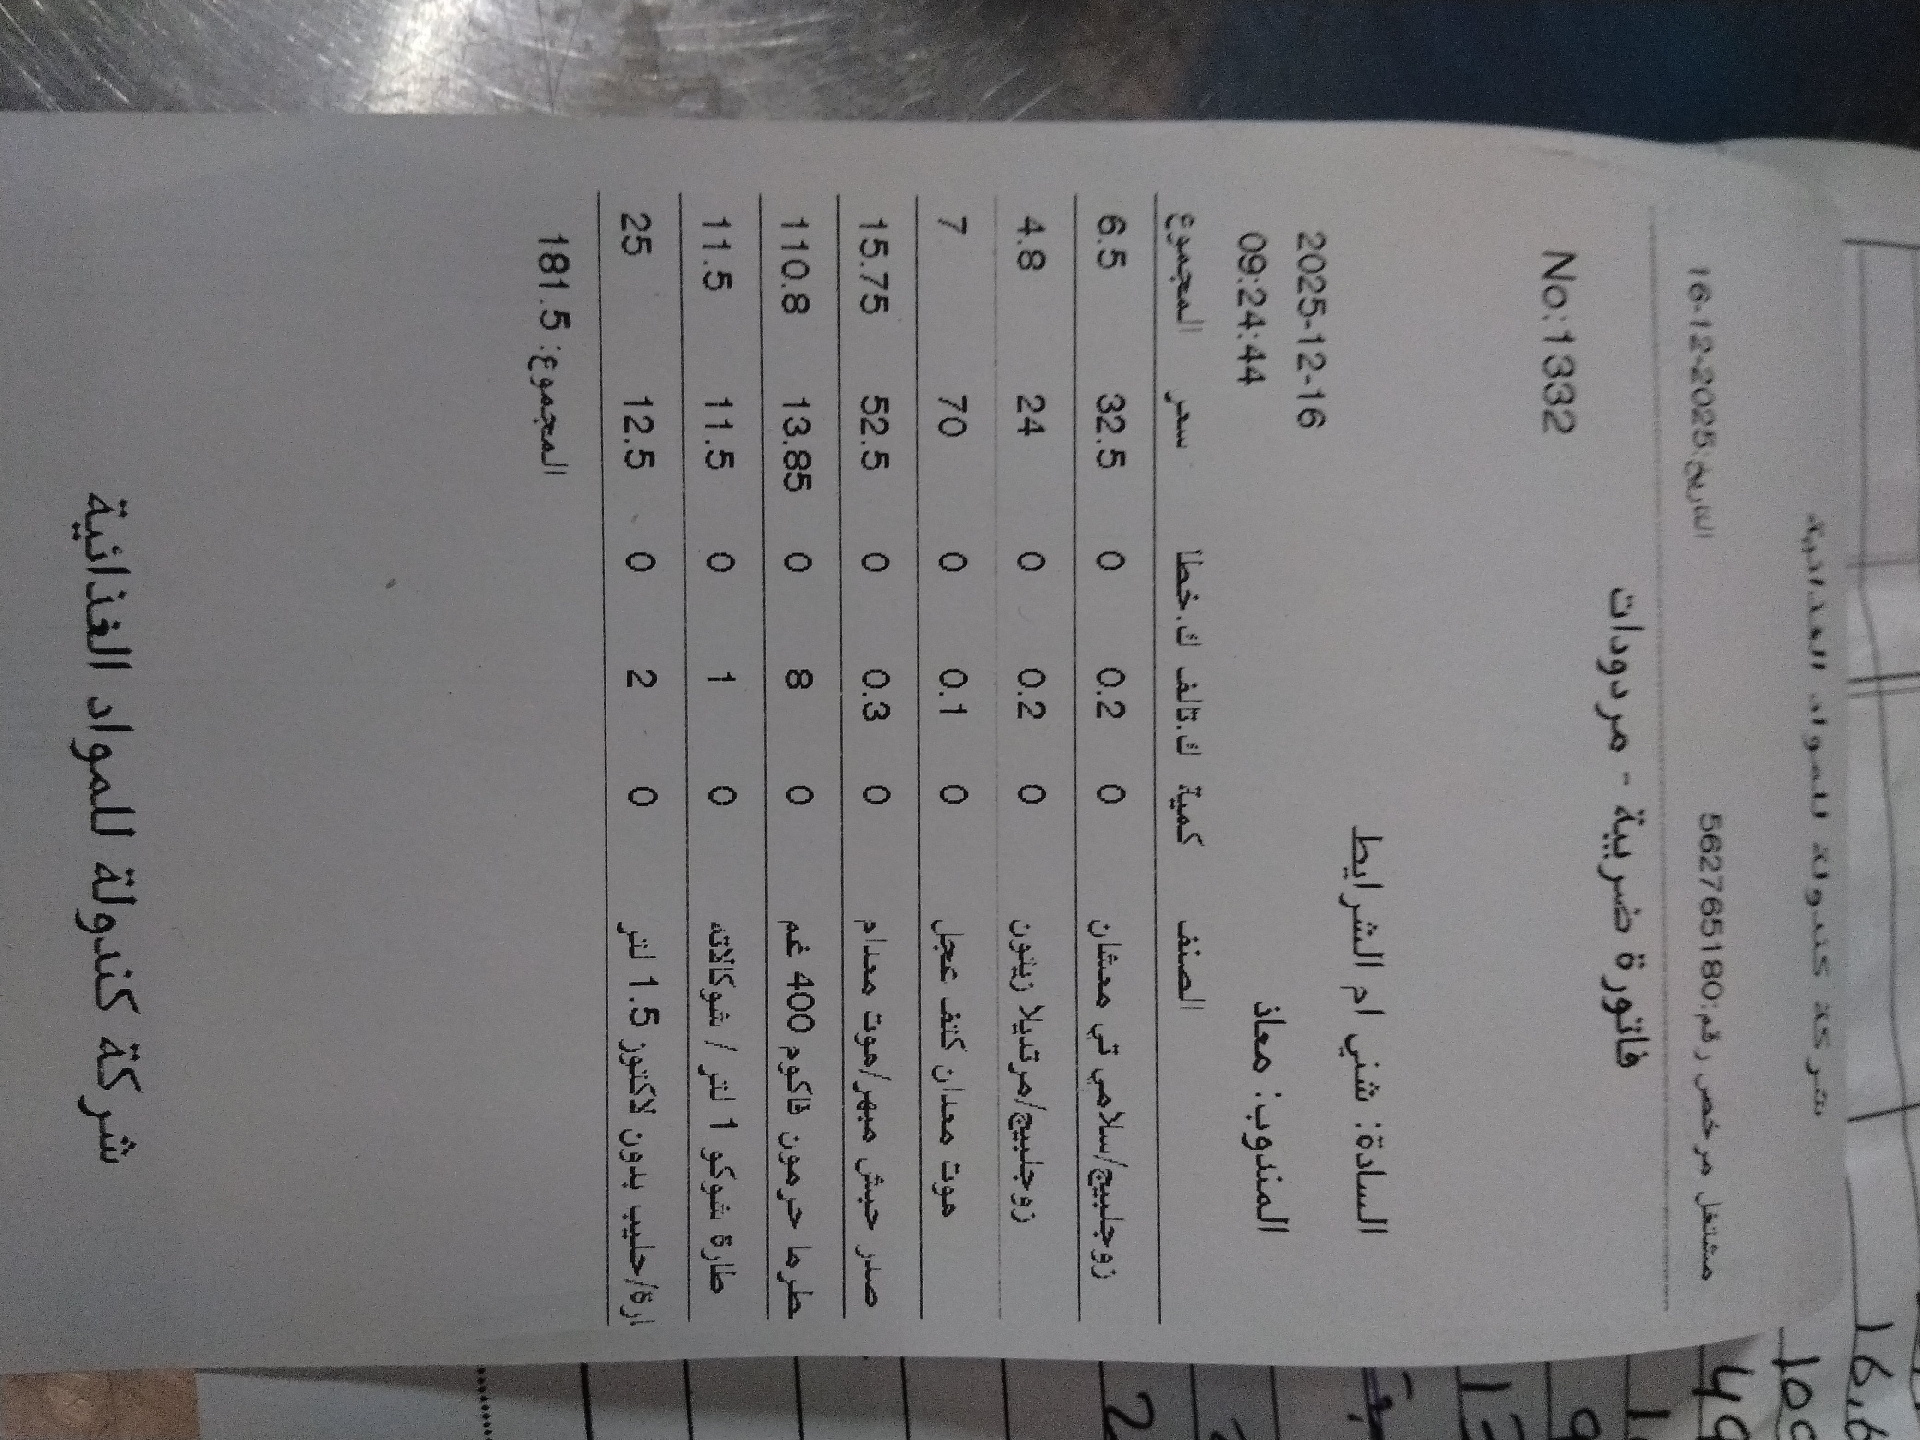 شركة كندولة للمواد الغذائية
مشتغل مرخص رقم:562765180 التاريخ:2025-12-16
فاتورة ضريبية - مردودات
No:1332
السادة: شني ام الشرايط
2025-12-16
المندوب: معاذ 09:24:44
الصنف كمية ك.تالف ك.خطا سعر المجموع
زوجلبيج/سلامي تي معشان 0 0.2 0 32.5 6.5
زوجلبيج/مرتديلا زيتون 0 0.2 0 24 4.8
هوت معدان كتف عجل 0 0.1 0 70 7
صدر حبش مبهر/هوت معدام 0 0.3 0 52.5 15.75
طرما حرمون فاكوم 400 غم 0 8 0 13.85 110.8
طارة شوكو 1 لتر / شوكالاته 0 1 0 11.5 11.5
ارة/حليب بدون لاكتوز 1.5 لتر 0 2 0 12.5 25
المجموع: 181.5
شركة كندولة للمواد الغذائية